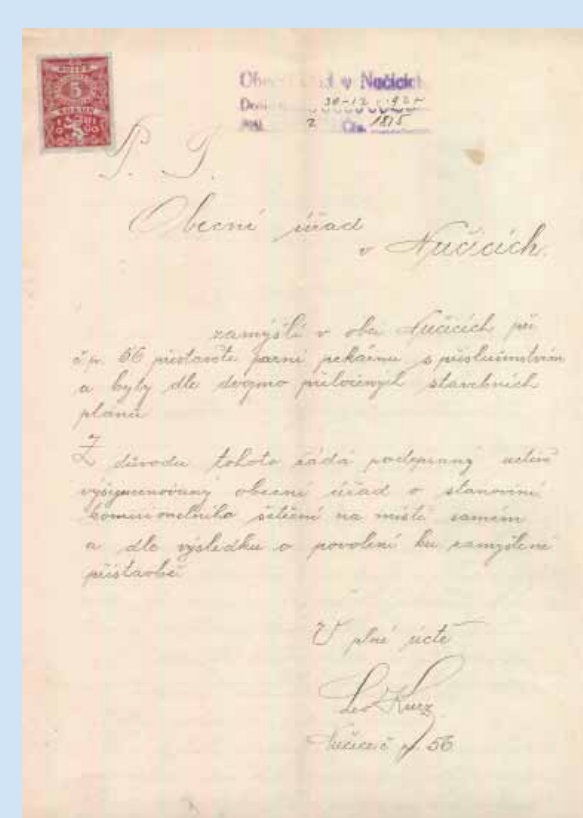 KOLEK
5
KORUN
Obecní úřad v Nučicích
30-12
2 Čís. 1815
P. T.
Obecní úřad
v Nučicích.
zamýšlí v obci Nučicích při
č.p. 56 přistavěti parní pekárnu s příslušenstvím
a byty dle dvojmo přiložených stavebních
plánů
Z důvodu tohoto žádá podepsaný uctivě
výšejmenovaný obecní úřad o stanovení
komisionelního šetření na místě samém
a dle výsledku o povolení ku zamýšlené
přístavbě
V plné úctě
Leo Kurz
Nučice č p. 56